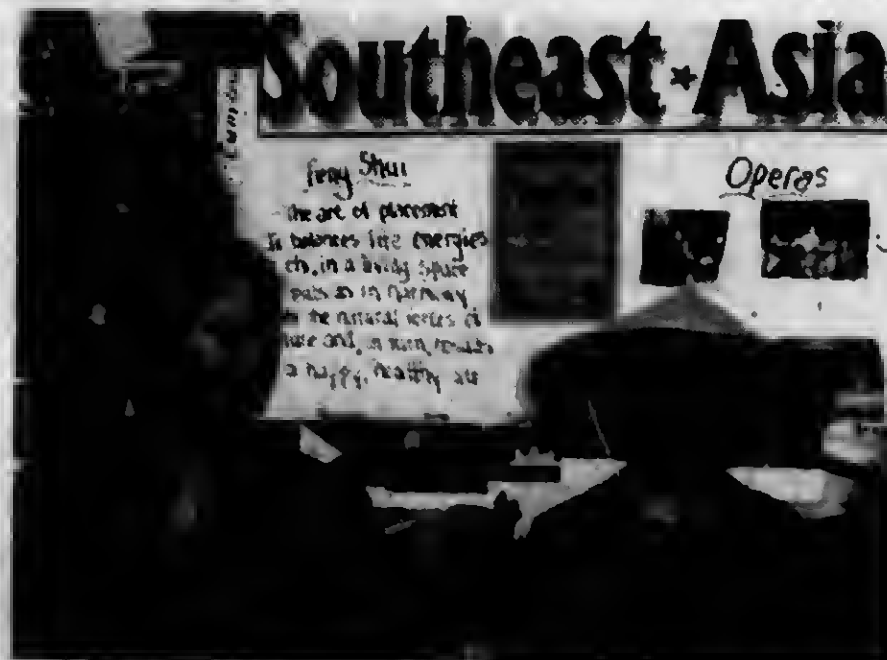 Southeast Asia
Feng Shui
the art of placement
balances life energies
in a living space
in harmony
the natural forces of
and, in turn, results
a happy, healthy
Operas